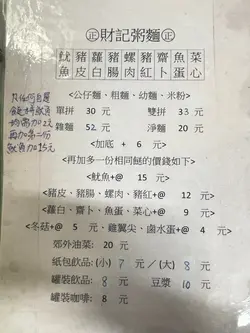 ㊣財記粥麵㊣
魷魚 豬皮 蘿白 豬腸 螺肉 豬紅 齋卜 魚蛋 菜心
<公仔麵、粗麵、幼麵、米粉>
單拼 30 元 雙拼 33 元
雜麵 52 元 淨麵 20 元
<加底 + 6 元>
<再加多一份相同餸的價錢如下>
<魷魚+@ 15 元>
<豬皮、豬腸、螺肉、豬紅+@ 12 元>
<蘿白、齋卜、魚蛋、菜心+@ 9 元>
<冬菇+@ 5 元、雞翼尖、鹵水蛋+@ 4 元>
郊外油菜 20 元
紙包飲品:(小) 7 元/(大) 8 元
罐裝飲品: 8 元 豆漿 10 元
罐裝咖啡: 8 元
凡任何自選
均需加2元
再加第二份
魷魚加15元